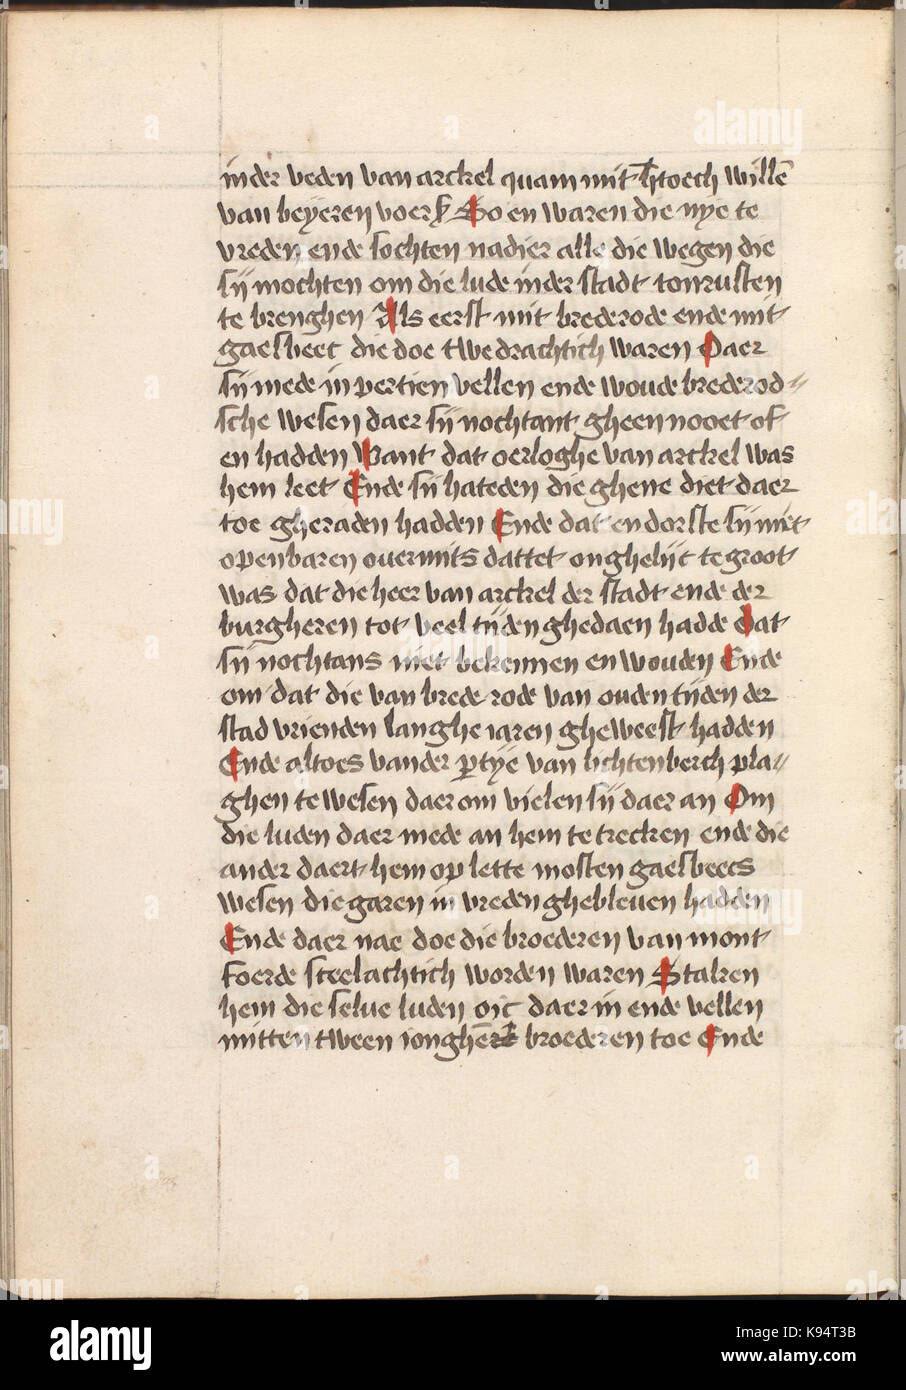 inder veden van arckel quam mit htoech willē
van beyeren voers So en waren die nye te
vreden ende sochten nadier alle die wegen die
sij mochten om die lude inder stadt tonrusten
te brenghen Als eerst mit brederode ende mit
gaesbeec die doe twedrachtich waren Daer
sij mede in pertien vellen ende woude brederod〃
sche wesen daer sij nochtant gheen nooet of
en hadden Want dat oerloghe van arckel was
hem leet Ende sij hateden die ghene diet daer
toe gheraden hadden Ende dat en dorste sij niet
openbaren ouermits dattet onghelijc te groot
was dat die heer van arckel der stadt ende der
burgheren tot veel tijden ghedaen hadde Dat
sij nochtans niet bekennen en wouden Ende
om dat die van brede rode van ouden tijden der
stad vrienden langhe iaren gheweest hadden
Ende altoes vander ptye van lichtenberch pla〃
ghen te wesen daer om vielen sij daer an Om
die luden daer mede an hem te trecken ende die
ander daert hem op lette mosten gaesbeecs
wesen die garen in vreden ghebleuen hadden
Ende daer nae doe die broederen van mont
foerde steelachtich worden waren Staken
hem die selue luden oic daer in ende vellen
mitten tween ionghere broederen toe Ende
alamy
a
Image ID: K94T3B
www.alamy.com